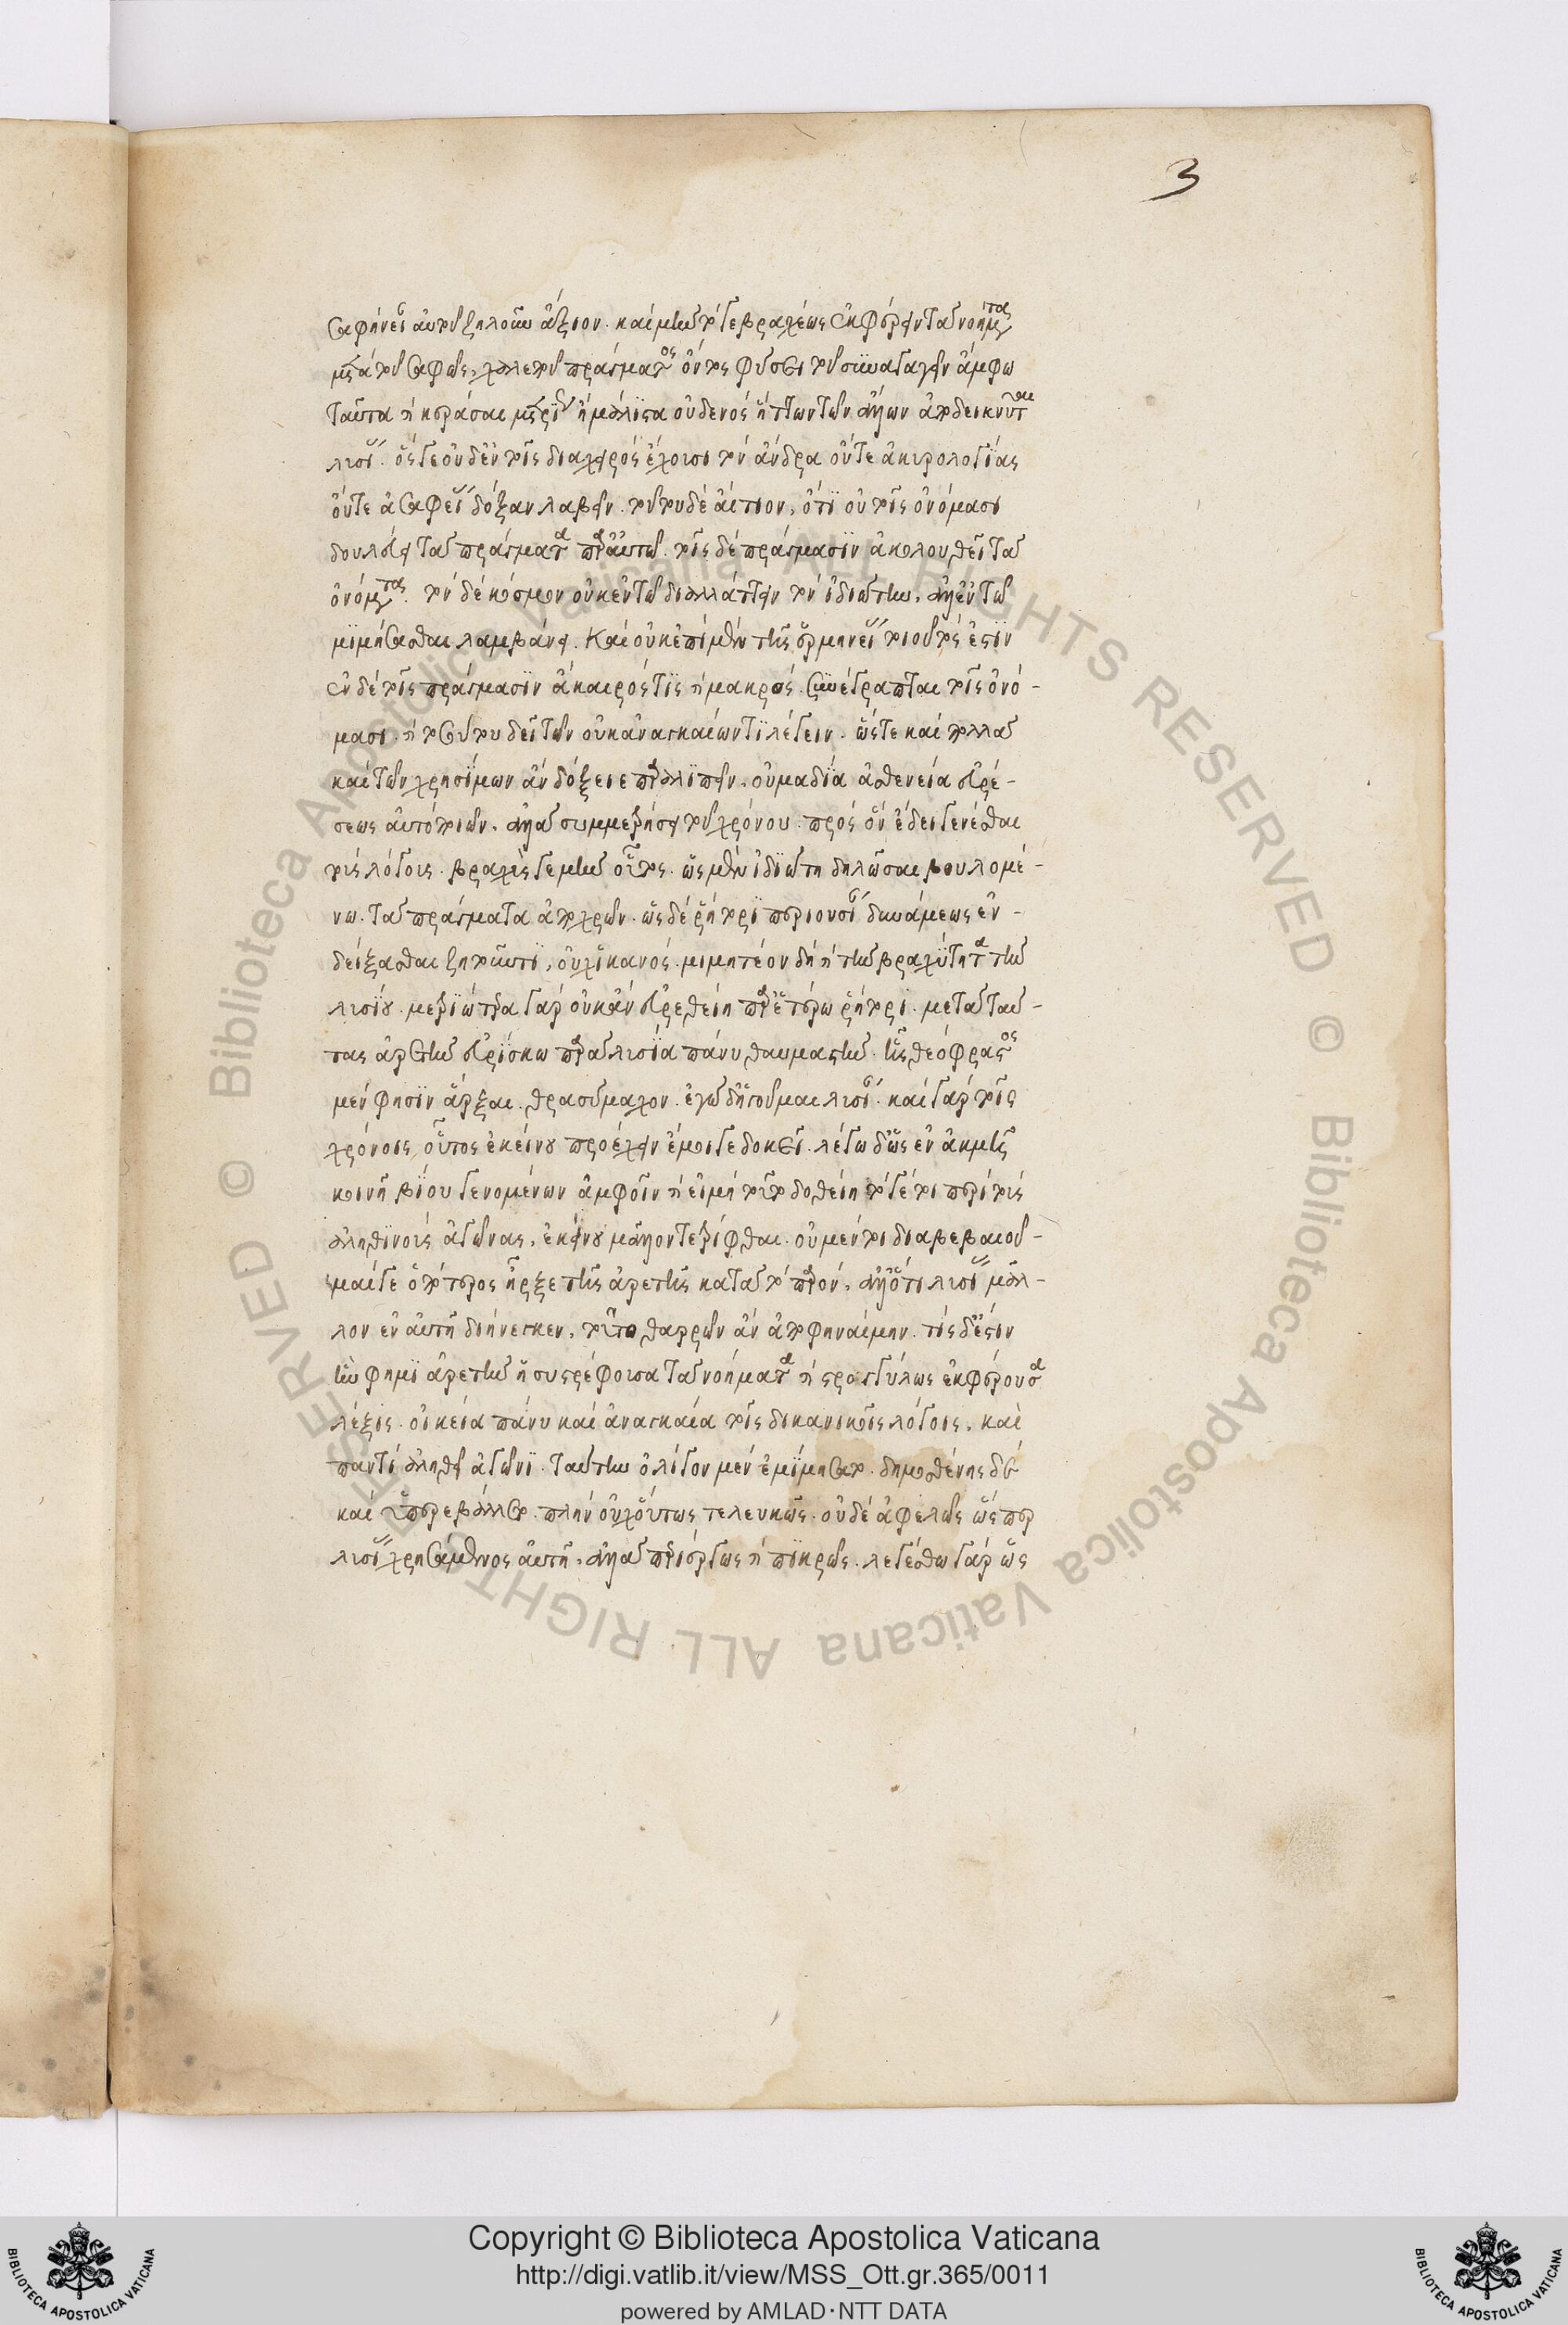 3
σαφήνειαν αὐτοῦ ζηλοῦν ἄξιον. καὶ μὴν τό γε βραχέως ἐκφέρειν τὰ νοήματα
μετὰ τοῦ σαφῶς, χαλεποῦ πράγματος ὄντος φύσει τοῦ συναγαγεῖν ἄμφω
ταῦτα καὶ κεράσαι μετρίως ᾗ μάλιστα οὐδενὸς ἧττον τῶν ἄλλων ἀποδείκνυται
λυσίας. ὅς γε οὐδὲν τοῖς διὰ χειρὸς ἔχουσι τὸν ἄνδρα οὔτε ἀκυρολογίας
οὔτε ἀσαφείας δόξαν λαβεῖν. τούτου δὲ αἴτιον, ὅτι οὐ τοῖς ὀνόμασι
δουλεύει τὰ πράγματα παρ' αὐτῷ. τοῖς δὲ πράγμασιν ἀκολουθεῖ τὰ
ὀνόματα. τὸν δὲ κόσμον οὐκ ἐν τῷ διαλλάττειν τὸν ἰδιώτην, ἀλλ' ἐν τῷ
μιμήσασθαι λαμβάνει. Καὶ οὐκ ἐπὶ μὲν τῆς ἑρμηνείας τοιοῦτός ἐστιν
ἐν δὲ τοῖς πράγμασιν ἄκαιρός τις καὶ μακρός. συνέστραπται τοῖς ὀνό-
μασι. καὶ τοσούτου δεῖ τῶν οὐκ ἀναγκαίων τι λέγειν. ὥστε καὶ πολλὰ
καὶ τῶν χρησίμων ἂν δόξειε παραλιπεῖν. οὐ μὰ δία ἀσθενείᾳ εὑρέ-
σεως αὐτὸ ποιῶν. ἀλλὰ συμμετρήσει τοῦ χρόνου. πρὸς ὃν ἔδει γενέσθαι
τοὺς λόγους. βραχύς γε μὴν οὗτος. ὡς μὲν ἰδιώτῃ δηλῶσαι βουλομέ-
νῳ. τὰ πράγματα ἀποχρῶν. ὡς δὲ ῥήτορι περιουσίας δυνάμεως ἐν-
δείξασθαι ζητοῦντι, οὐχ ἱκανός. μιμητέον δὴ καὶ τὴν βραχύτητα τὴν
λυσίου. μετριωτέρα γὰρ οὐκ ἂν εὑρεθείη παρ' ἑτέρῳ ῥήτορι. μετὰ ταύ-
τας ἀρετὴν εὑρίσκω παρὰ λυσίᾳ πάνυ θαυμαστήν. ἧς θεόφραστος
μέν φησιν ἄρξαι. θρασύμαχον. ἐγὼ δ' ἡγοῦμαι λυσίαν. καὶ γὰρ τοῖς
χρόνοις οὗτος ἐκείνου προέχειν ἔμοιγε δοκεῖ. λέγω δ' ὡς ἐν ἀκμῇ
κοινῇ βίου γενομένων ἀμφοῖν καὶ εἰ μὴ τοῦτο δοθείη τό γέ τοι περὶ τοὺς
ἀληθινοὺς ἀγῶνας. ἐκείνου μᾶλλον τετρίφθαι. οὐ μέντοι διαβεβαιοῦ-
μαί γε ὁπότερος ἦρξε τῆς ἀρετῆς κατὰ τὸ παρόν, ἀλλ' ὅτι λυσίας μᾶλ-
λον ἐν αὐτῇ διήνεγκεν, τοῦτο θαρρῶν ἂν ἀποφηναίμην. τίς δ' ἐστὶν
ἥν φημι ἀρετὴν ἡ συστρέφουσα τὰ νοήματα καὶ στρογγύλως ἐκφέρουσα
λέξις. οἰκεία πάνυ καὶ ἀναγκαία τοῖς δικανικοῖς λόγοις. καὶ
παντὶ ἀληθεῖ ἀγῶνι. ταύτην ὀλίγον μὲν ἐμιμήσατο. δημοσθένης δὲ
καὶ ὑπερεβάλλετο. πλὴν οὐχ οὕτως τελευκῶς. οὐδὲ ἀφελῶς ὥσπερ
λυσίας χρησάμενος αὐτῇ. ἀλλὰ περιέργως καὶ πικρῶς. λεγέσθω γὰρ ὡς
Copyright © Biblioteca Apostolica Vaticana
http://digi.vatlib.it/view/MSS_Ott.gr.365/0011
powered by AMLAD·NTT DATA
BIBLIOTECA APOSTOLICA VATICANA
BIBLIOTECA APOSTOLICA VATICANA
© Biblioteca Apostolica Vaticana ALL RIGHTS RESERVED © Biblioteca Apostolica Vaticana ALL RIGHTS RESERVED